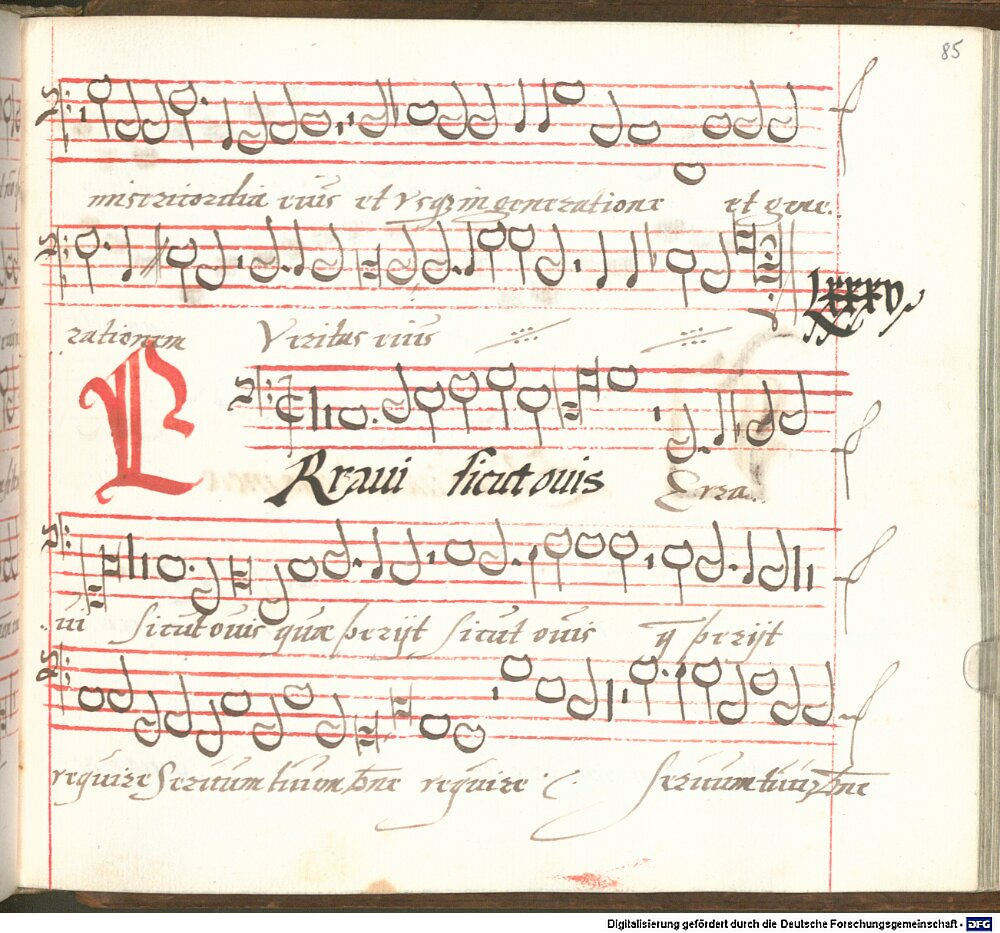 85
misericordia eius et usq; in generatione et gene..
rationem Veritas eius
LXXXV.
ERraui sicut ouis Erra..
..ui sicut ouis quæ perijt sicut ouis q̄ perijt
require Seruum tuum Dne require Seruum tuum Dne
Digitalisierung gefördert durch die Deutsche Forschungsgemeinschaft - DFG